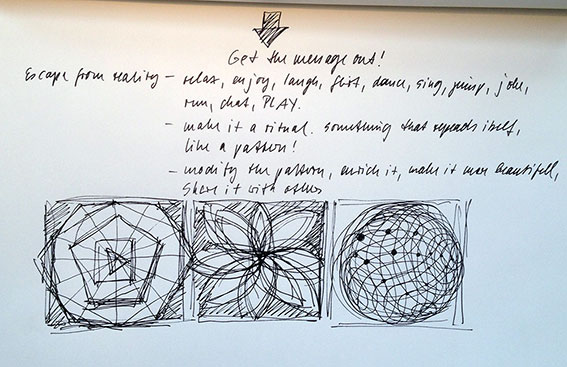 Get the message out!
Escape from reality - relax, enjoy, laugh, flirt, dance, sing, jump, joke,
run, chat, PLAY.
- make it a ritual. something that repeads itself,
like a pattern!
- modify the pattern, enrich it, make it more beautifull,
share it with others